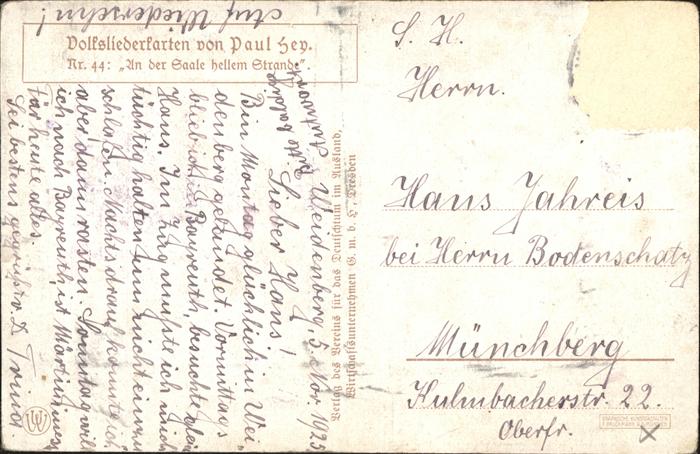 Auf Wiedersehn!
Volksliederkarten von Paul Hey.
Nr. 44: „An der Saale hellem Strande".
Weidenberg, 5. Nov. 1925
Lieber Hans!
Bin Montag glücklich in Wei-
denberg gelandet. Vormittags
blieb ich in Bayreuth, besuchte
Hans. Im Zug mußte ich mich
tüchtig halten um nicht einzu-
schlafen. Nachts drauf konnte ich
aber dann rasten. Sonntag will
ich nach Bayreuth, ist
Für heute alles.
Sei bestens gegrüßt v. D.
Trudl.
Bitte baldige
Antwort
Verlag des Vereins für das Deutschtum im Ausland,
Wirtschaftsunternehmen G. m. b. H., Dresden
S. H.
Herrn.
Hans Jahreis
bei Herrn Bodenschatz
Münchberg
Kulmbacherstr. 22.
Oberfr.